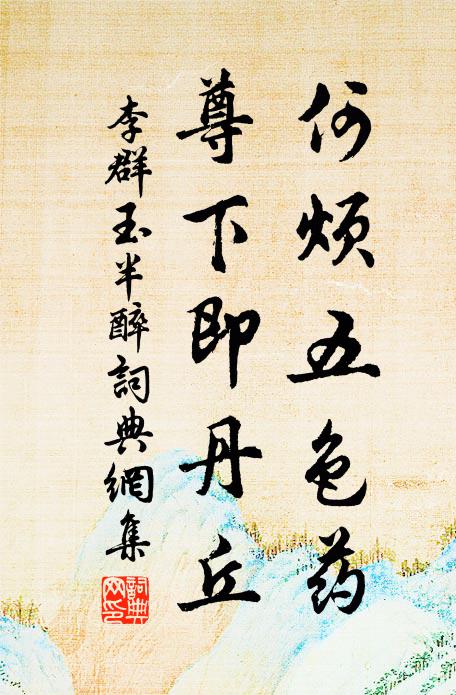 何烦五色药
尊下即丹丘
李群玉半醉詞典網集
詞典網印